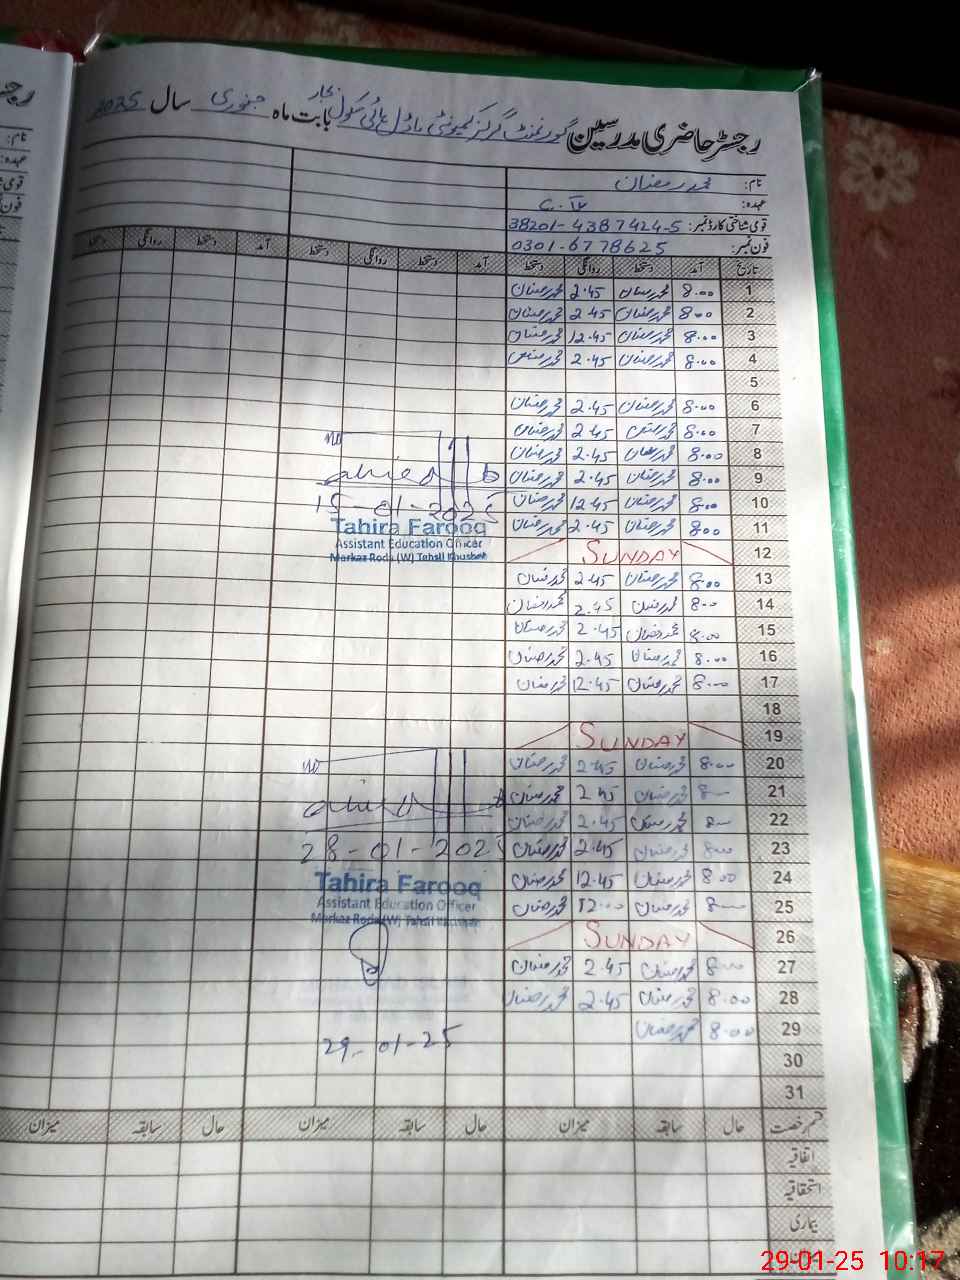 رجسٹر حاضری مدرسین گورنمنٹ گرلز کمیونٹی ماڈل ہائی سکول بابت ماہ جنوری سال 2025
نام: محمد رمضان
عہدہ: C.IV
قومی شناختی کارڈ نمبر: 38201-4387424-5
فون نمبر: 0301-6778625
تاریخ آمد دستخط روانگی دستخط آمد دستخط روانگی دستخط آمد دستخط روانگی دستخط
1 8.00 محمد رمضان 2.45 محمد رمضان
2 8.00 محمد رمضان 2.45 محمد رمضان
3 8.00 محمد رمضان 12.45 محمد رمضان
4 8.00 محمد رمضان 2.45 محمد رمضان
5
6 8.00 محمد رمضان 2.45 محمد رمضان
7 8.00 محمد رمضان 2.45 محمد رمضان
8 8.00 محمد رمضان 2.45 محمد رمضان
9 8.00 محمد رمضان 2.45 محمد رمضان
10 8.00 محمد رمضان 12.45 محمد رمضان
11 8.00 محمد رمضان 2.45 محمد رمضان
15-01-2025
Tahira Farooq
Assistant Education Officer
Markaz Roda (W) Tahsil Khushab
12 SUNDAY
13 8.00 محمد رمضان 2.45 محمد رمضان
14 8.00 محمد رمضان 2.45 محمد رمضان
15 8.00 محمد رمضان 2.45 محمد رمضان
16 8.00 محمد رمضان 2.45 محمد رمضان
17 8.00 محمد رمضان 12.45 محمد رمضان
18
19 SUNDAY
20 8.00 محمد رمضان 2.45 محمد رمضان
21 8.00 محمد رمضان 2.45 محمد رمضان
22 8.00 محمد رمضان 2.45 محمد رمضان
23 8.00 محمد رمضان 2.45 محمد رمضان
28-01-2025
24 8.00 محمد رمضان 12.45 محمد رمضان
Tahira Farooq
Assistant Education Officer
Markaz Roda (W) Tahsil Khushab
25 8.00 محمد رمضان 12.00 محمد رمضان
26 SUNDAY
27 8.00 محمد رمضان 2.45 محمد رمضان
28 8.00 محمد رمضان 2.45 محمد رمضان
29 8.00 محمد رمضان
29-01-25
30
31
قسم رخصت حال سابقہ میزان حال سابقہ میزان حال سابقہ میزان
اتفاقیہ
استحقاقیہ
بیماری
29-01-25 10:17